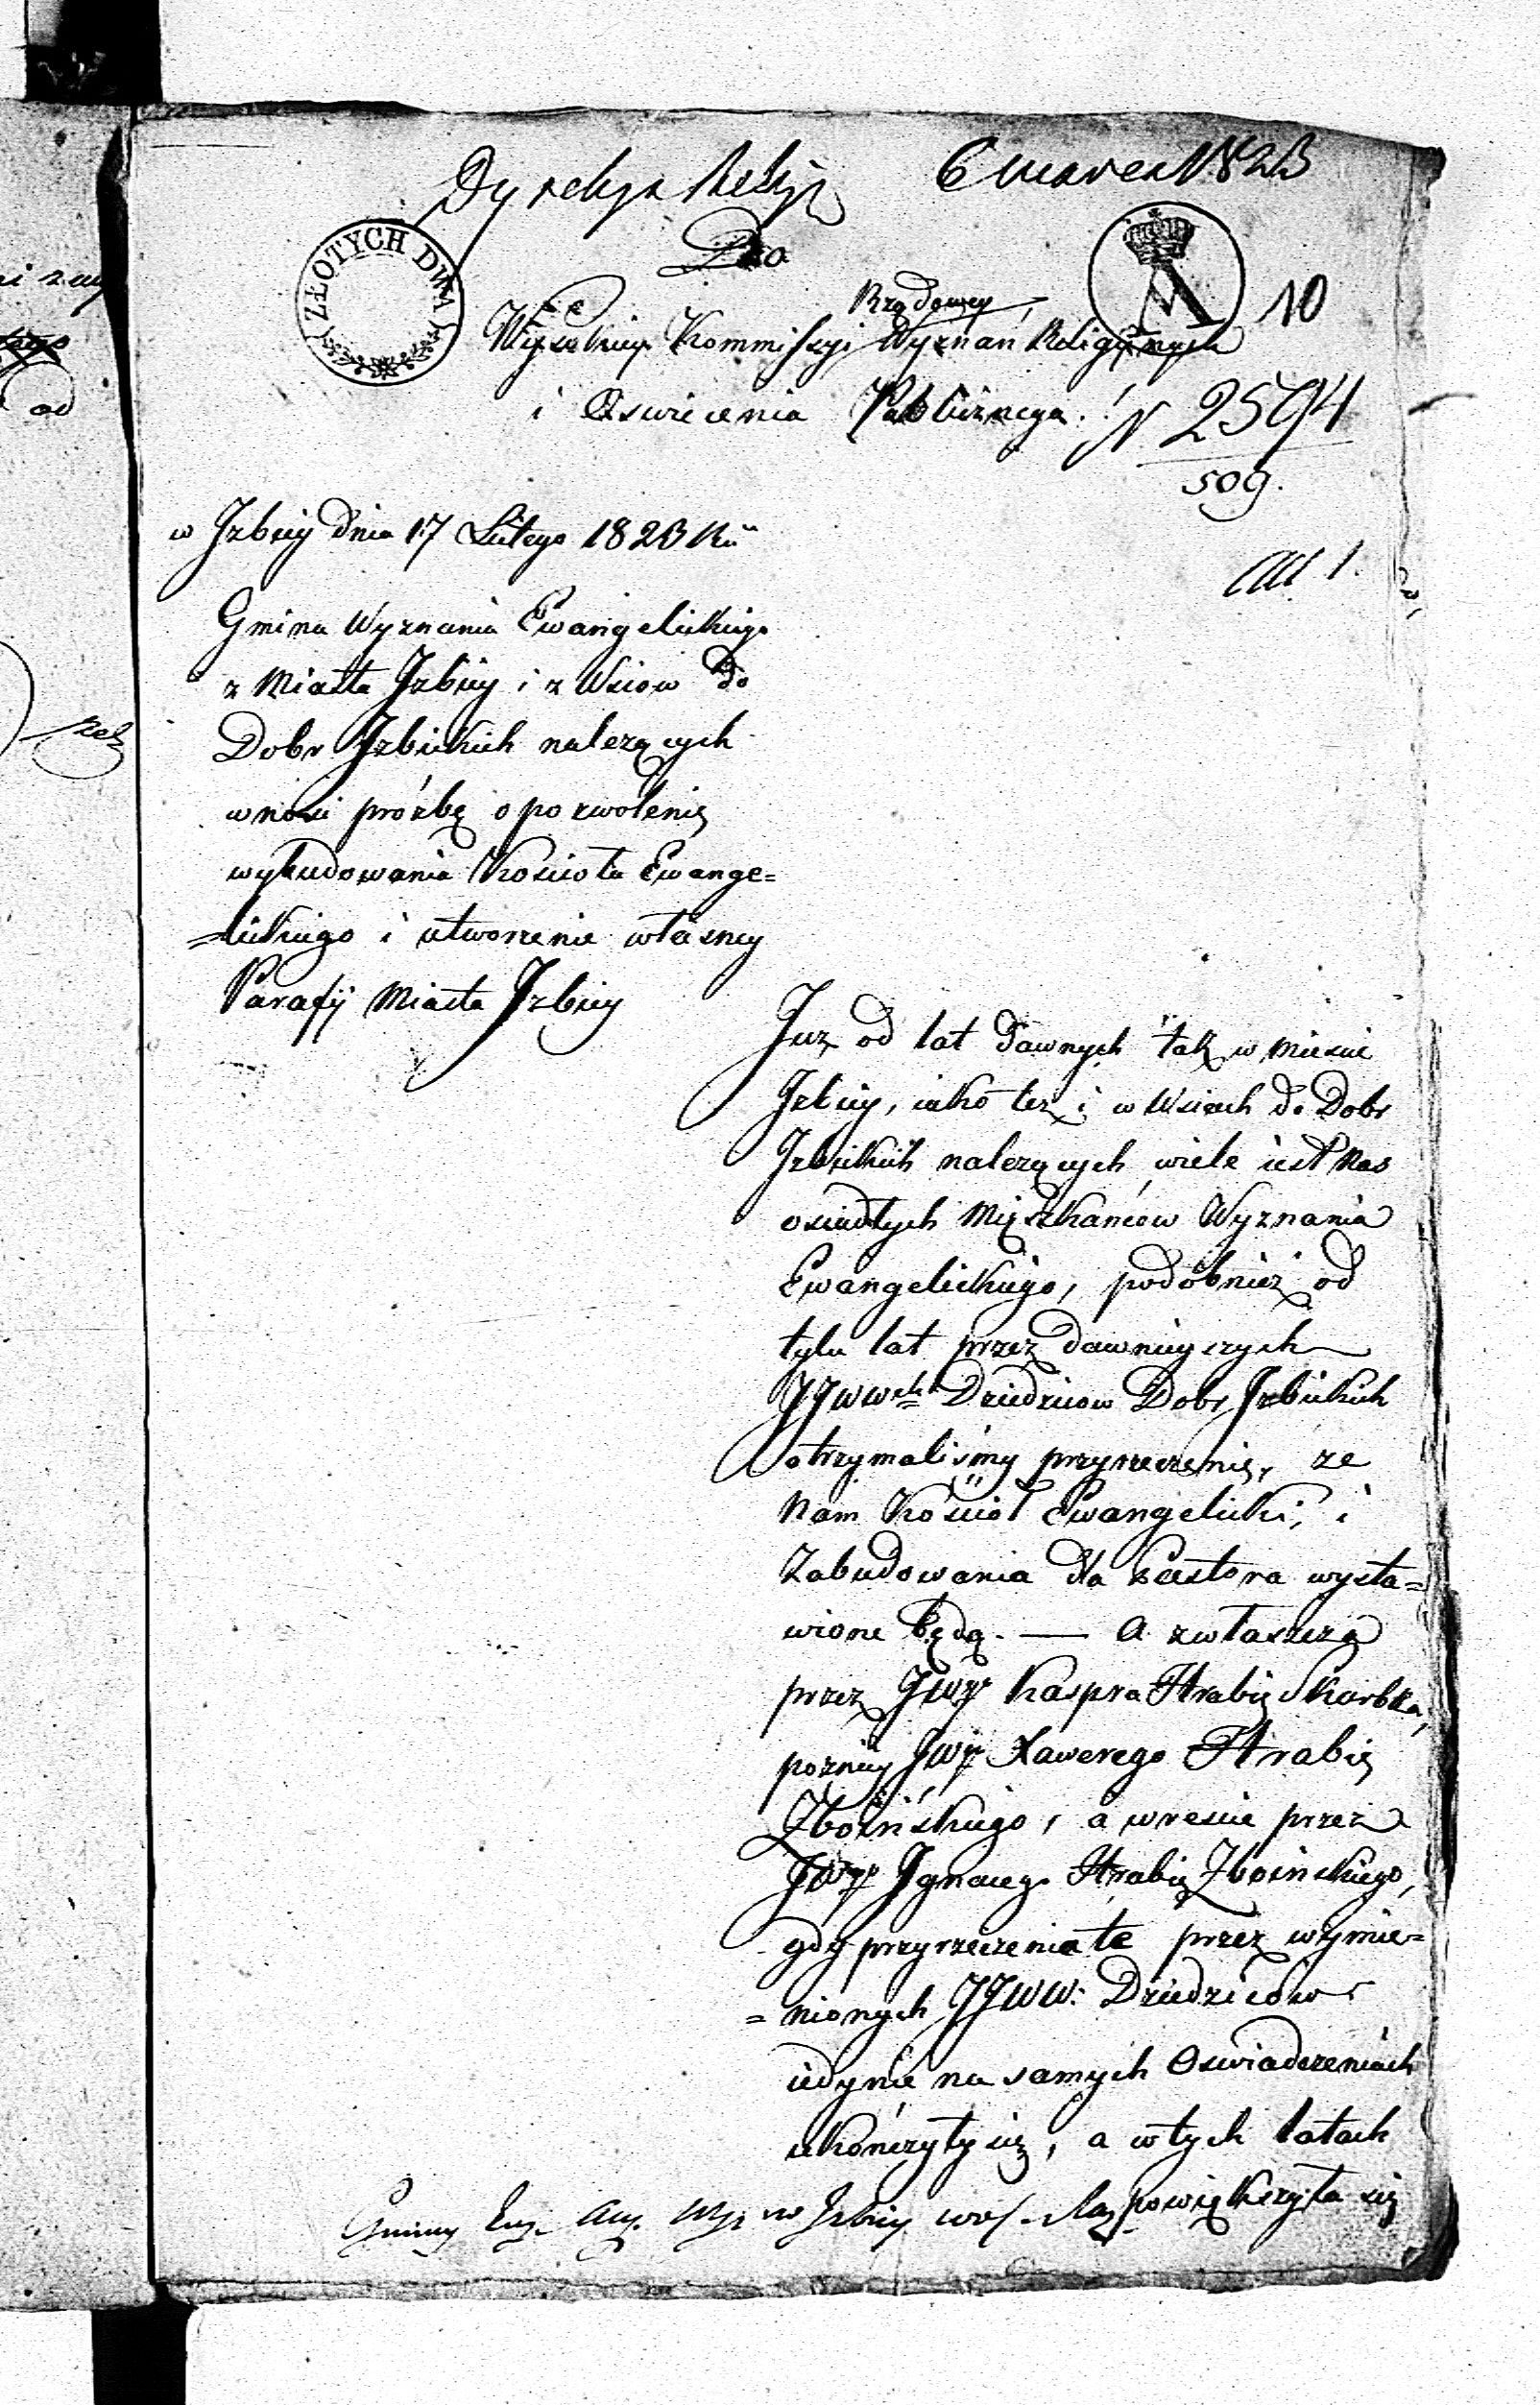 Dyrekcya Religij 6 Marca 1823
Do
ZŁOTYCH DWA
Rządowey
10
Wysokiey Kommissyi Wyznań Religiynych
i Oswiecenia Publicznego.
N 2594
509.
w Jzbicy dnia 17 Lutego 1823 Ru
All 1.
Gmina Wyznania Ewangelickiego
z Miasta Jzbicy i z Wsiow do
Dobr Jzbickich należących
wnosi próżbę o pozwolenię
wybudowania Koscioła Ewange=
=lickiego i utworzenie własney
Parafij Miasta Jzbicy
Już od lat dawnych tak w Miescie
Jzbicy, iako też i w Wsiach do Dobr
Jzbickich należących wiele iest Nas
osiadłych Mięszkańcow Wyznania
Ewangelickiego, podobnież od
tylu lat przez dawnieyszych
JJWWch Dziedzicow Dobr Jzbickich
otrzymaliśmy przyrzeczenię, ze
Nam Kościoł Ewangelicki, i
Zabudowania dla Pastora wysta=
wione będą. — A zwłaszcza
przez JWgo Kaspra Hrabię Skarbka,
pozniey JWgo Xawerego Hrabię
Zboińskiego, a wrescie przez
JWgo Jgnacego Hrabię Zboinskiego,
gdy przyrzeczenia te przez wymie=
=nionych JJWW. Dziedziców
iedynie na samych Oswiadczeniach
ukończyły się, a w tych latach
powiększyła się
Gminy Ew. Aug. Wyz w Jzbicy